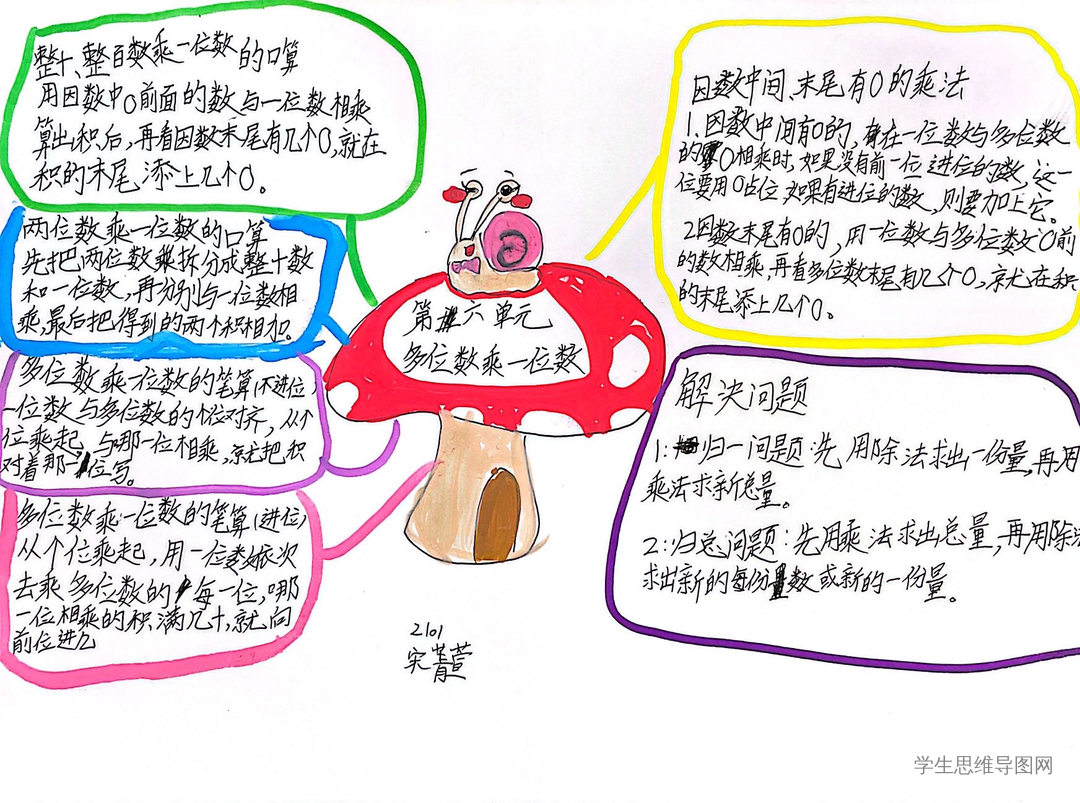 整十、整百数乘一位数的口算
用因数中0前面的数与一位数相乘
算出积后,再看因数末尾有几个0,就在
积的末尾添上几个0。
两位数乘一位数的口算
先把两位数乘拆分成整十数
和一位数,再分别与一位数相
乘,最后把得到的两个积相加。
多位数乘一位数的笔算(不进位
一位数与多位数的个位对齐,从个
位乘起,与哪一位相乘,就把积
对着那一位写。
多位数乘一位数的笔算(进位)
从个位乘起,用一位数依次
去乘多位数的每一位,哪
一位相乘的积满几十,就向
前位进几
第六单元
多位数乘一位数
因数中间、末尾有0的乘法
1.因数中间有0的,在一位数与多位数
的0相乘时,如果没有前一位进位的数,这一
位要用0占位,如果有进位的数,则要加上它。
2因数末尾有0的,用一位数与多位数0前
的数相乘,再看多位数末尾有几个0,就在积
的末尾添上几个0。
解决问题
1:归一问题:先用除法求出一份量,再用
乘法求新总量。
2:归总问题:先用乘法求出总量,再用除法
求出新的每份数或新的一份量。
2101
宋菁萱
学生思维导图网